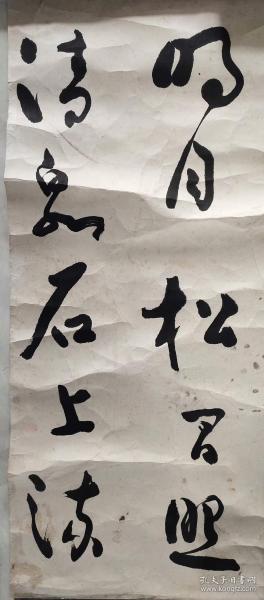 明月松间照
清泉石上流
孔夫子旧书网
www.kongfz.com